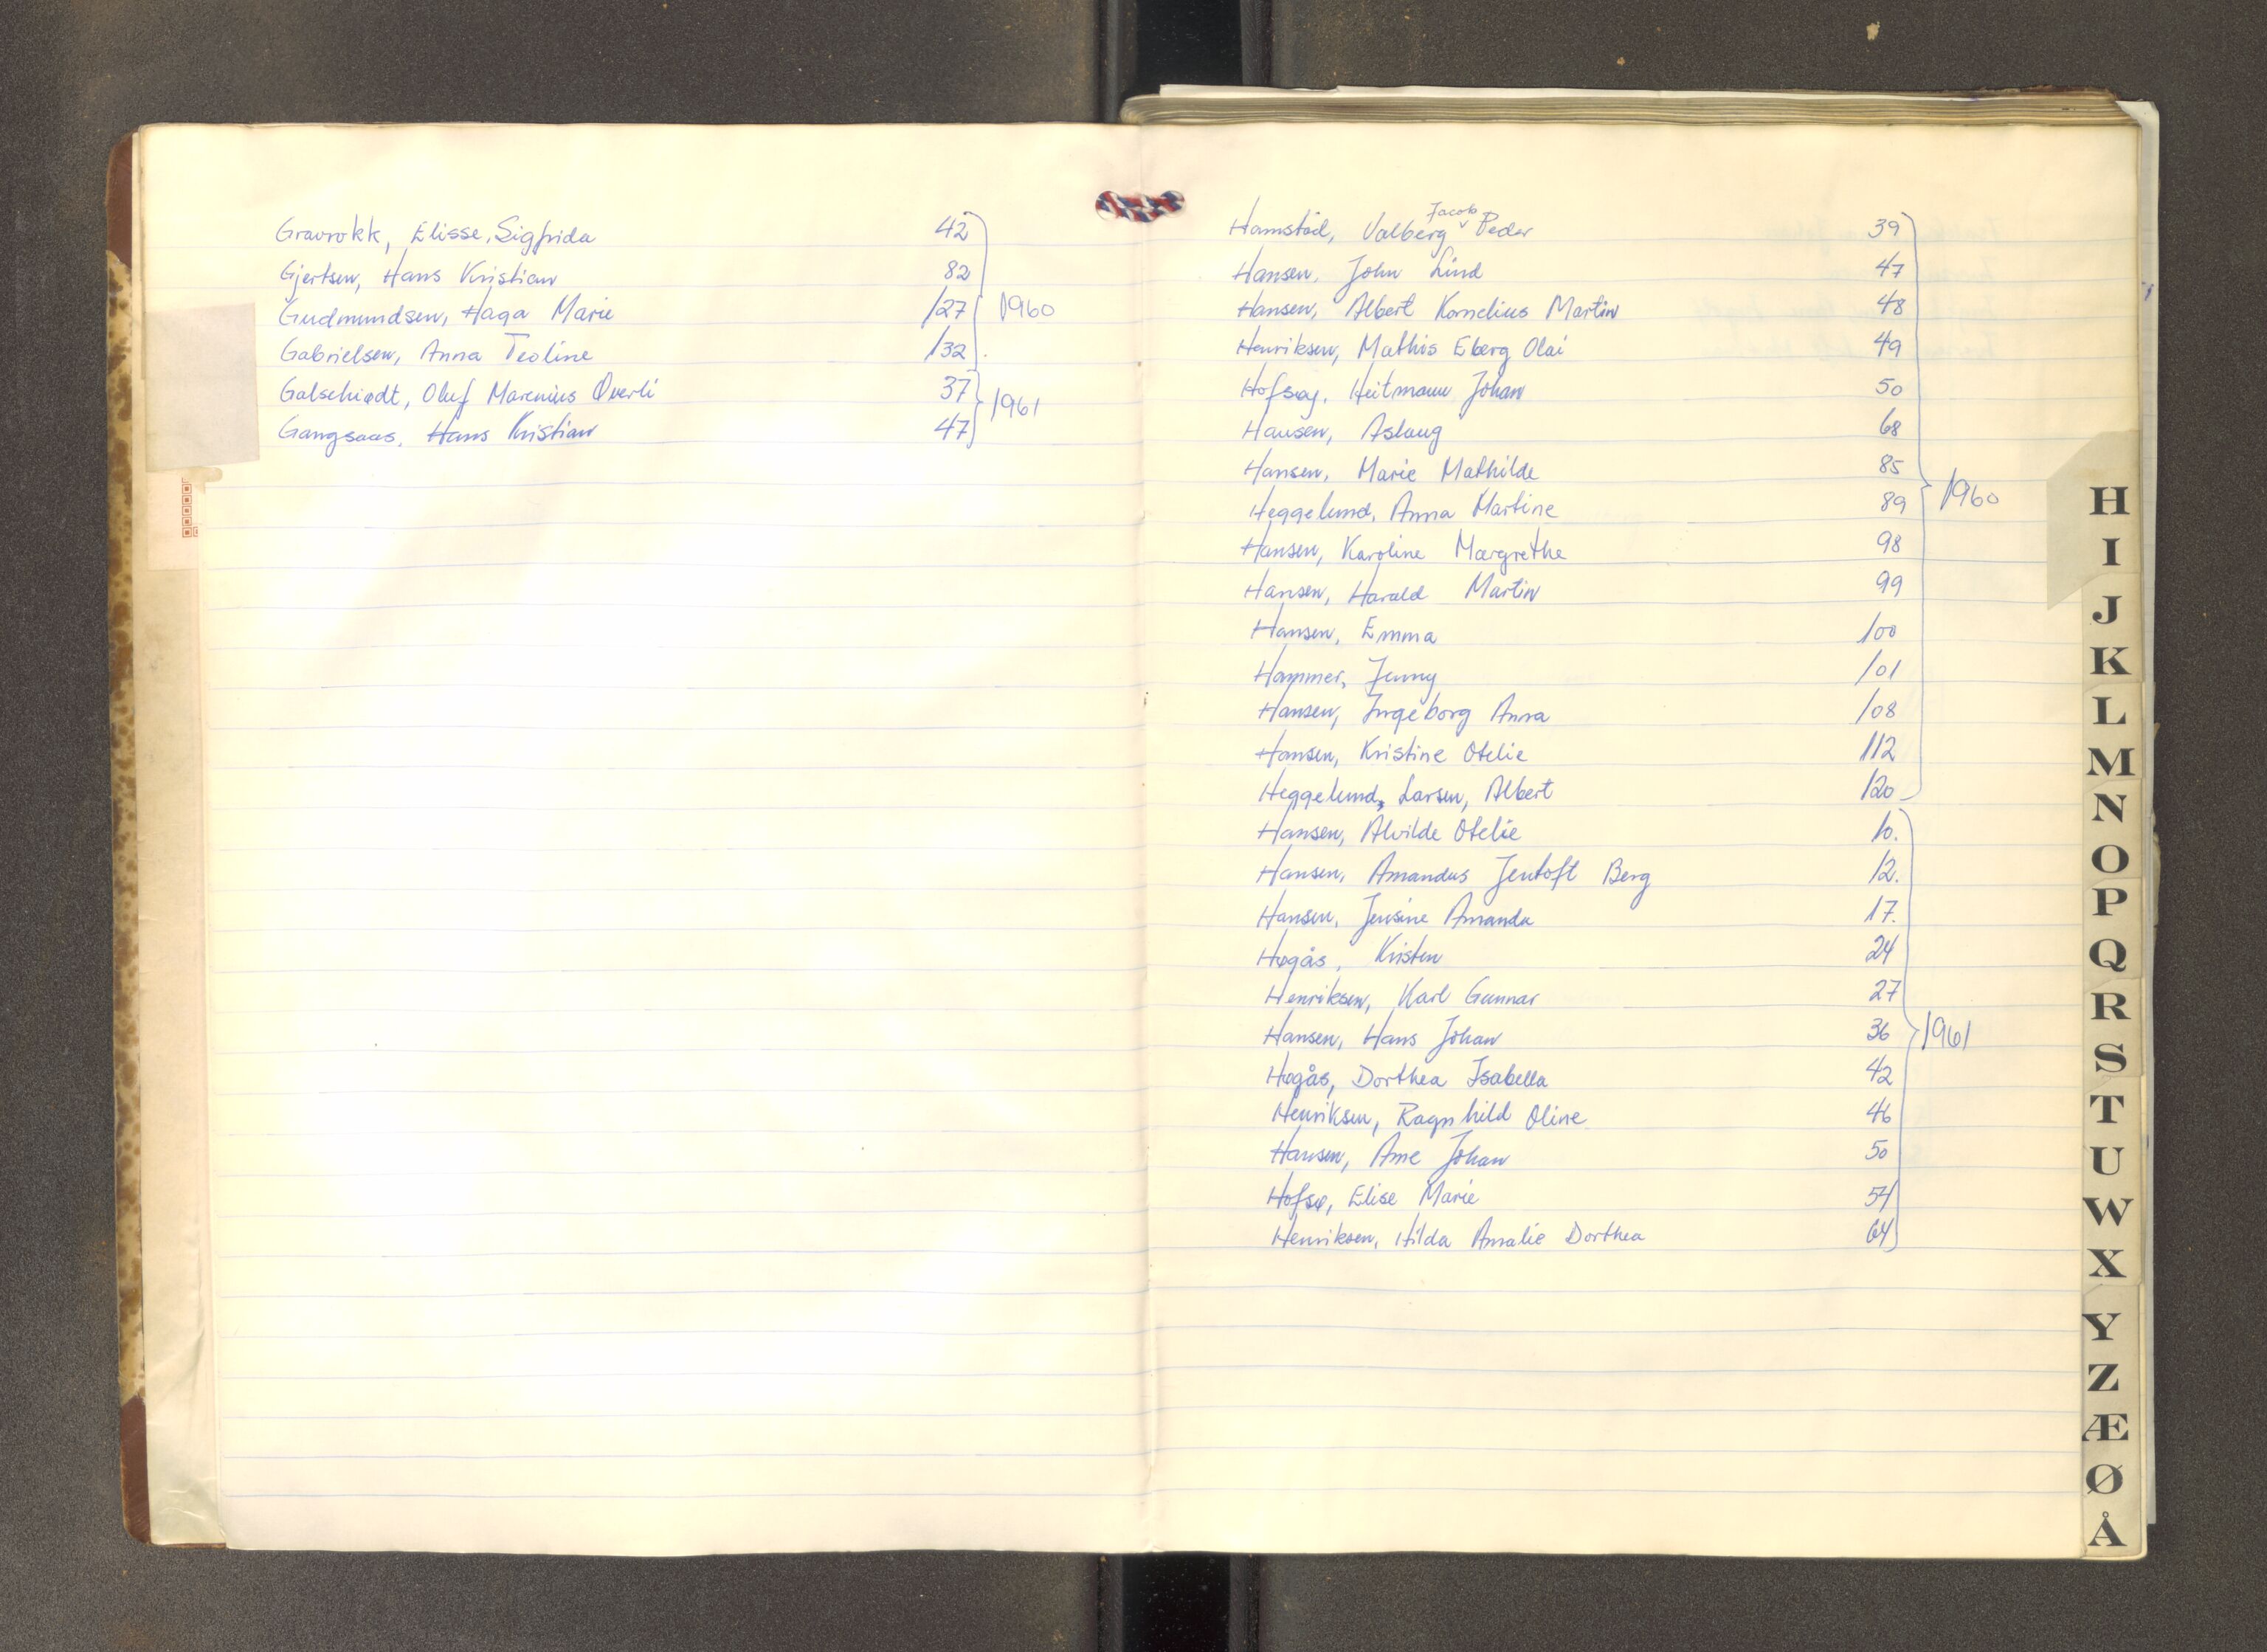 Gravrokk, Elisse, Sigfrida 42
Gjertsen, Hans Kristian 82
Gudmundsen, Haga Marie 127
1960
Gabrielsen, Anna Teoline 132
Galschiødt, Oluf Marenius Øverli 37
1961
Gangsaas, Hans Kristian 47
Jacob
Hamstad, Valberg Peder 39
Hansen, John Lind 47
Hansen, Albert Kornelius Martin 48
Henriksen, Mathis Eberg Olai 49
Heitmann Johan 50
Hansen, Aslaug 68
Hansen, Marie Mathilde 85
Heggelund, Anna Martine 89
1960
Hansen, Karoline Margrethe 98
Hansen, Harald Martin 99
Hansen, Emma 100
Hammer, Jenny 101
Hansen, Ingeborg Anna 108
Hansen, Kristine Otelie 112
Heggelund, Larsen, Albert 120
Hansen, Alvilde Otelie 10.
Hansen, Amandus Jentoft Berg 12.
Hansen, Jensine Amanda 17.
Høgås, Kristen 24
Henriksen, Karl Gunnar 27
Hansen, Hans Johan 36
1961
Høgås, Dorthea Isabella 42
Henriksen, Ragnhild Oline 46
Hansen, Arne Johan 50
Hofsø, Elise Marie 54
Henriksen, Hilda Amalie Dorthea 64
H
I
J
K
L
M
N
O
P
Q
R
S
T
U
W
X
Y
Z
Æ
Ø
Å